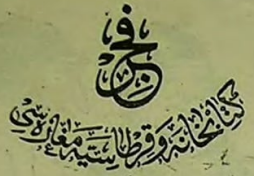 فجر
كتابخانه و قرطاسیه مغازه‌سی